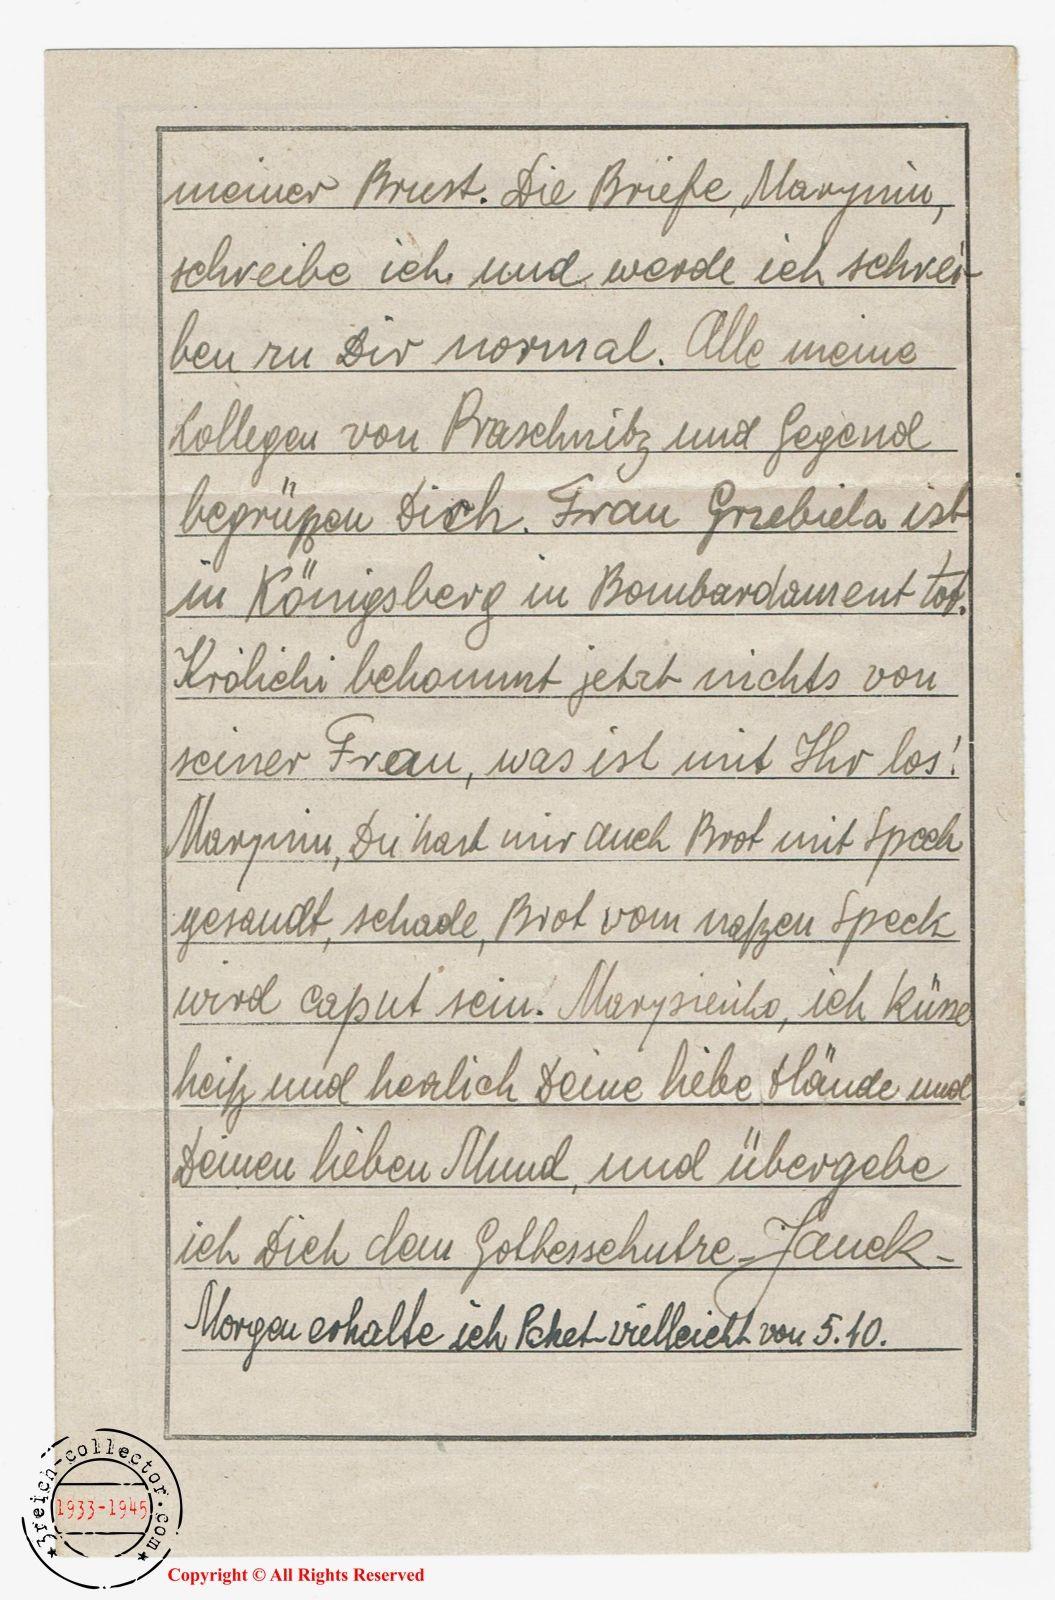 meiner Brust. Die Briefe, Marynin,
schreibe ich und werde ich schrei-
ben zu Dir normal. Alle meine
Collegen von Praschnitz und Gegend
begrüßen Dich. Frau Grzebiela ist
in Königsberg in Bombardament tot.
Krolicki bekommt jetzt nichts von
seiner Frau, was ist mit Ihr los!
Marynin, Du hast mir auch Brot mit Speck
gesandt, schade, Brot vom naßen Speck
wird caput sein. Marysienko, ich küsse
heiß und herzlich Deine liebe Hände und
Deinen lieben Mund, und übergebe
ich Dich dem Gottesschutze – Janek –
Morgen erhalte ich Paket vielleicht von 5.10.
3reich-collector.com
1933-1945
Copyright © All Rights Reserved